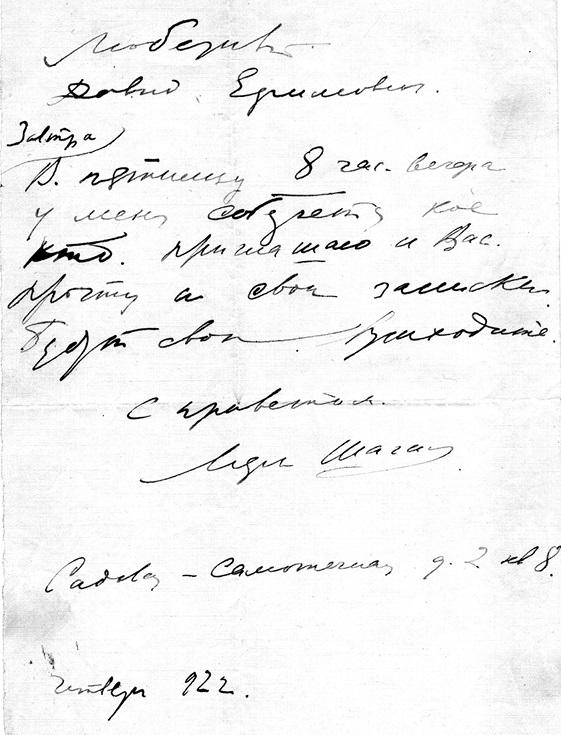 Любезный
Давид Ефимович.
Завтра
В. пятницу 8 час. вечера
у меня соберется кое
кто. приглашаю и Вас.
прочту я свои записки.
будут свои приходите.
С приветом.
Шагал
Садова – Самотечная д. 2 кв 8.
четверг 922.